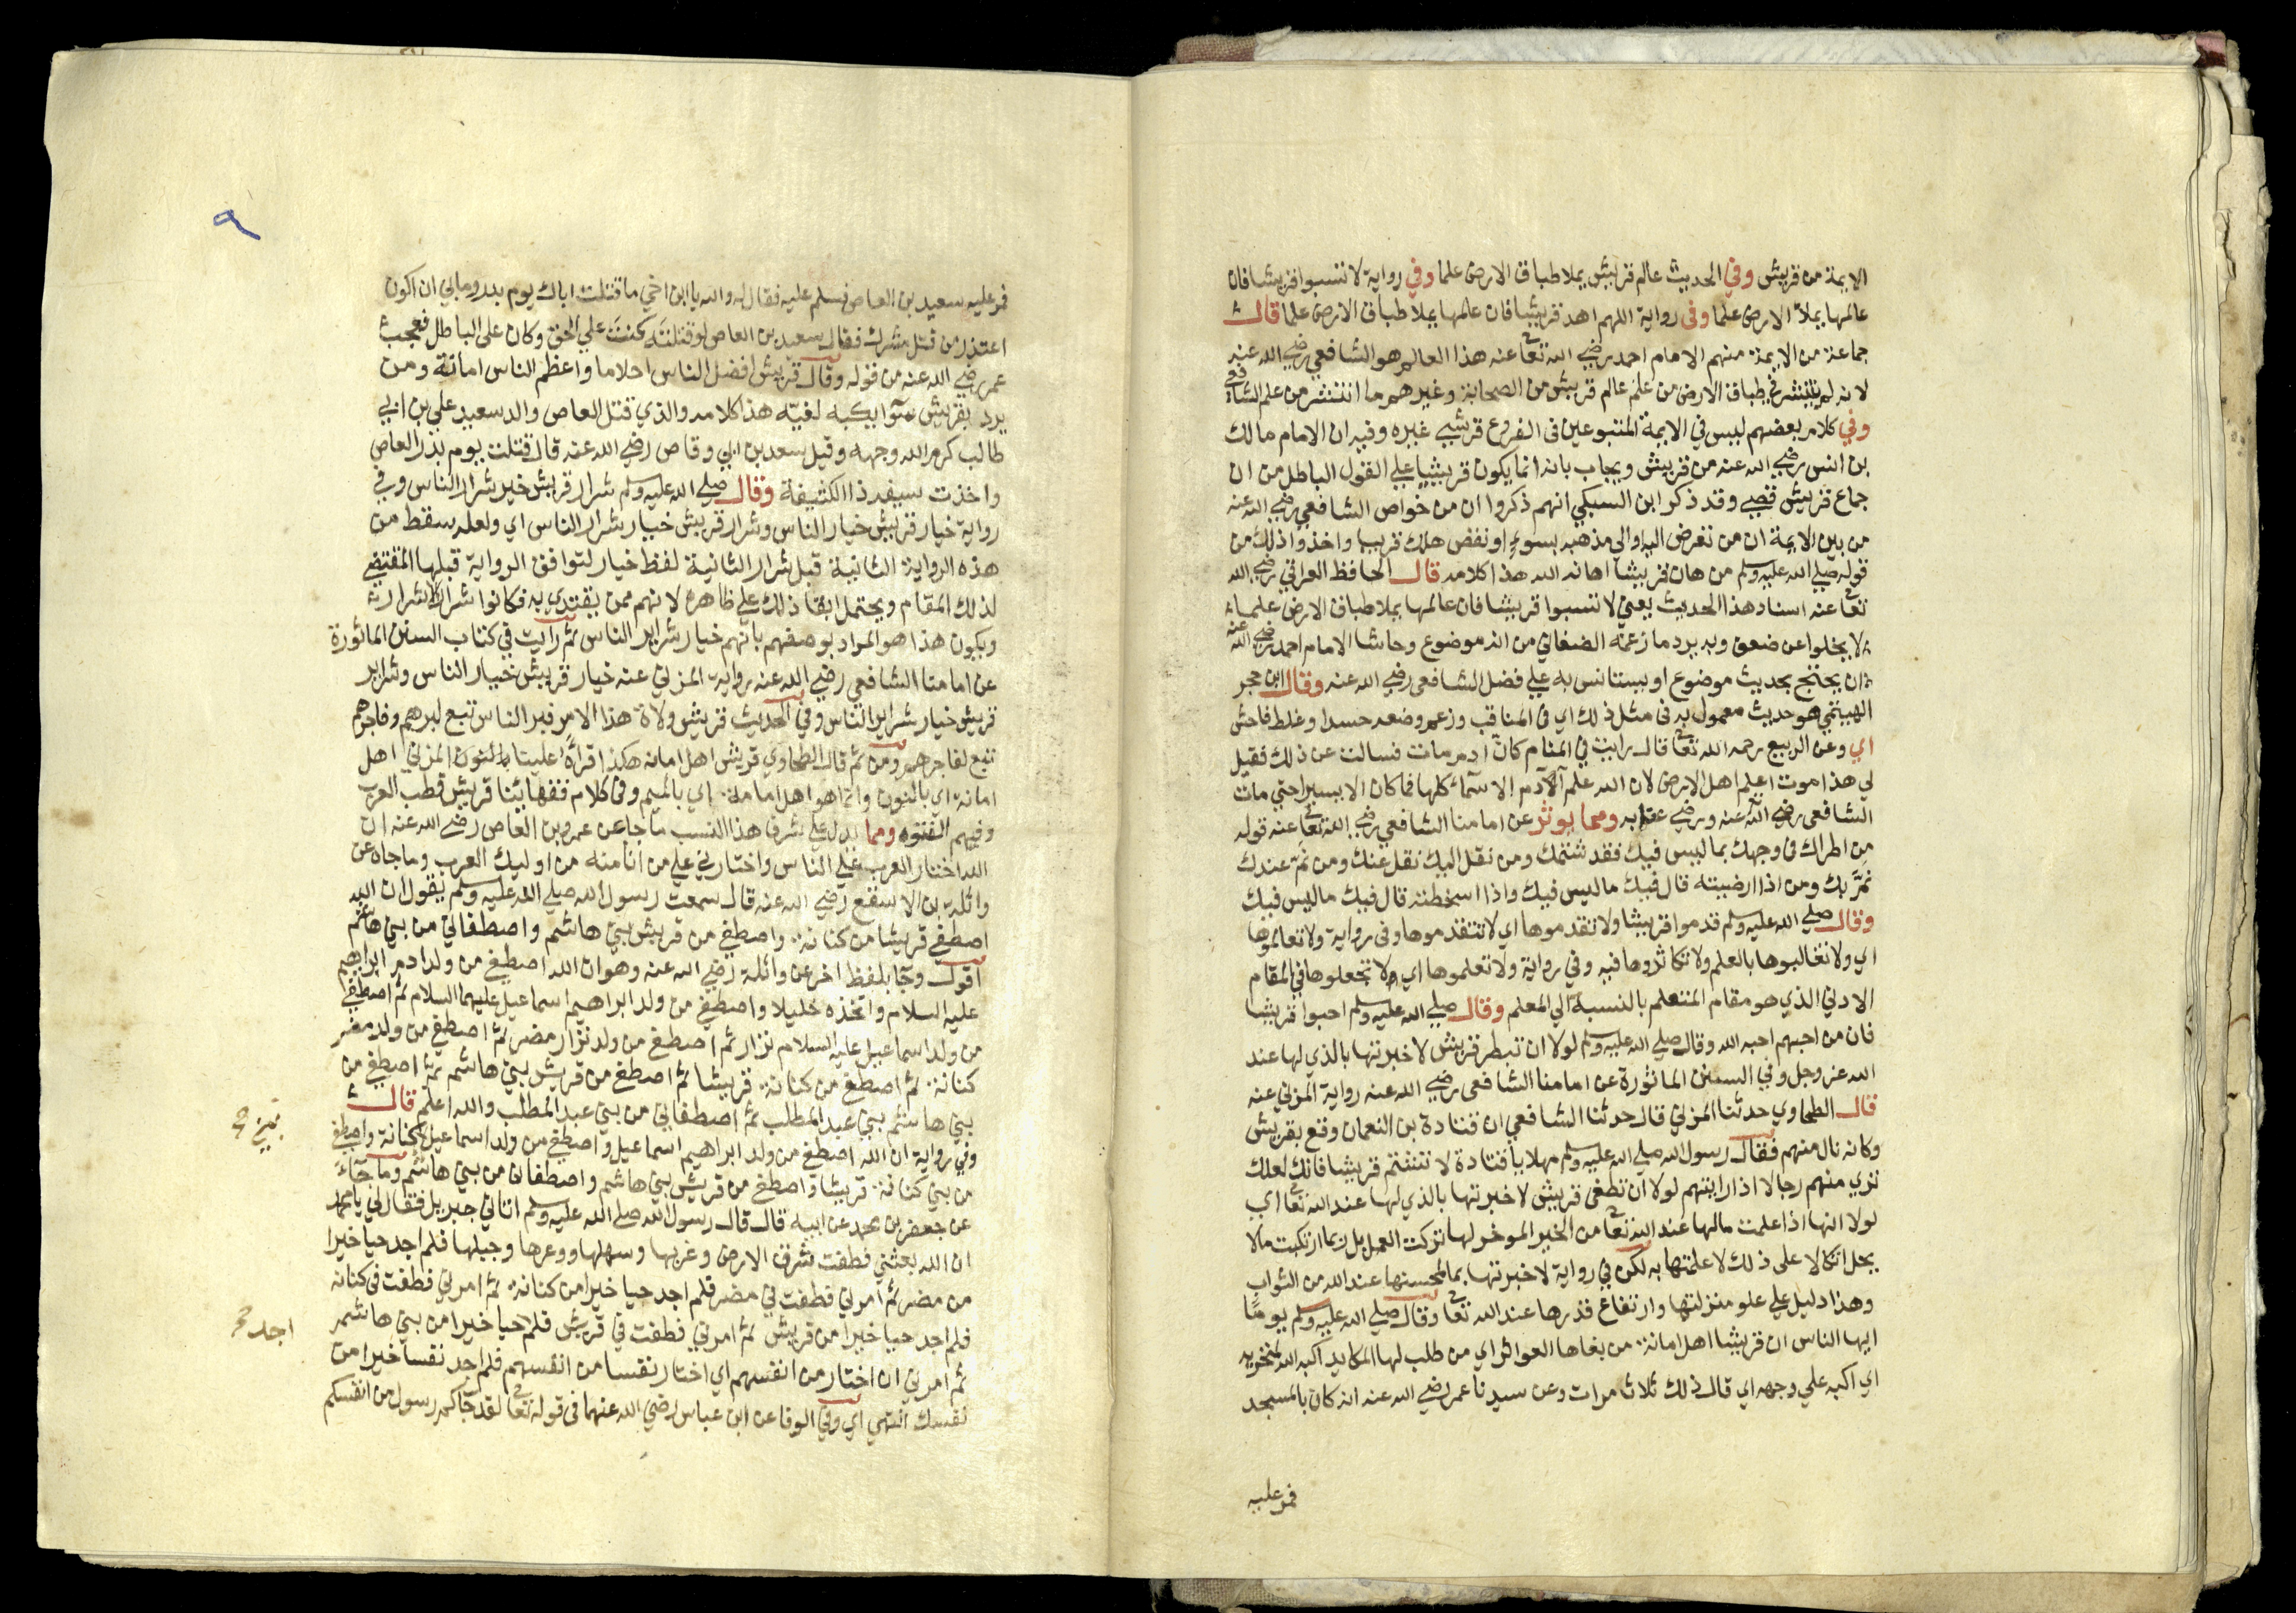 الايمة من قريش وفي الحديث عالم قريش يملا طباق الارض علما وفي رواية لا تسبوا قريشا فان
عالمها يملا الارض علما وفى رواية اللهم اهد قريشا فان عالمها يملا طباق الارض علما قال
جماعة من الايمة منهم الامام احمد رضي الله تعا عنه هذا العالم هو الشافعي رضي الله عنه
لانه لم ينتشر في طباق الارض من علم عالم قريش من الصحابة وغيرهم ما انتشر من علم الشافعي
وفي كلام بعضهم ليس في الايمة المتبوعين فى الفروع قرشي غيره وفيه ان الامام مالك
بن انس رضي الله عنه من قريش ويجاب بانه انما يكون قرشيا علي القول الباطل من ان
جماع قريش قصي وقد ذكر ابن السبكي انهم ذكروا ان من خواص الشافعي رضي الله عنه
من بين الايمة ان من تعرض اليه او الي مذهبه بسوء او نقص هلك قريبا واخذوا ذلك من
قوله صلي الله عليه وسلم من هان قريشا اهانه الله هذا كلامه قال الحافظ العراقي رضي الله
تعا عنه اسناد هذا الحديث يعني لا تسبوا قريشا فان عالمها يملا طباق الارض علما
لا يخلوا عن ضعف وبه يرد ما زعمه الصغاني من انه موضوع وحاشا الامام احمد رضي الله عنه
ان يحتج بحديث موضوع او يستانس به علي فضل الشافعي رضي الله عنه وقال ابن حجر
الهيتمي هو حديث معمول به فى مثل ذلك اي فى المناقب وزعم وضعه حسدا وغلط فاحش
اي وعن الربيع رحمه الله تعا قال رايت في المنام كان ادم مات فسالت عن ذلك فقيل
لي هذا موت اعلم اهل الارض لان الله علم آدم الاسماء كلها فما كان الا يسير احتي مات
الشافعي رضي الله عنه ورضي عنا به ومما يوثر عن امامنا الشافعي رضي الله تعا عنه قوله
من اطراك فى وجهك بما ليس فيك فقد شتمك ومن نقل اليك نقل عنك ومن نم عندك
نم بك ومن اذا ارضيته قال فيك ما ليس فيك واذا اسخطته قال فيك ما ليس فيك
وقال صلي الله عليه وسلم قدموا قريشا ولا تقدموها اي لا تتقدموها وفى رواية ولا تعالموها
اي ولا تغالبوها بالعلم ولا تكاثروها فيه وفي رواية ولا تعلموها اي ولا تجعلوها في المقام
الادني الذي هو مقام المتعلم بالنسبة الي المعلم وقال صلي الله عليه وسلم احبوا قريشا
فان من احبهم احبه الله وقال صلي الله عليه وسلم لولا ان تبطر قريش لاخبرتها بالذي لها عند
الله عز وجل وفي السنن الماثورة عن امامنا الشافعى رضي الله عنه رواية المزني عنه
قال الطحاوي حدثنا المزني قال حدثنا الشافعي ان قتادة بن النعمان وقع بقريش
وكانه نال منهم فقال رسول الله صلي الله عليه وسلم مهلا يا قتادة لا تشتم قريشا فانك لعلك
تري منهم رجالا اذا رايتهم لولا ان تطغى قريش لاخبرتها بالذي لها عند الله تعا اي
لولا انها اذا علمت مالها عند الله تعا من الخير الموخر لها تركت العمل بل ربما ارتكبت مالا
يحل اتكالا على ذلك لاعلمتها به لكن في رواية لاخبرتها بما لمحسنها عند الله من الثواب
وهذا دليل علي علو منزلتها وارتفاع قدرها عند الله تعا وقال صلي الله عليه وسلم يوما
ايها الناس ان قريشا اهل امانة من بغاها العواثر اي من طلب لها المكايد اكبه الله لمنخريه
اي اكبه علي وجهه اي قال ذلك ثلاث مرات وعن سيدنا عمر رضي الله عنه انه كان بالمسجد
فمر عليه
٩
فمر عليه سعيد بن العاص فسلم عليه فقال له والله يا ابن اخي ما قتلت اباك يوم بدر ومالي ان اكون
اعتذر من قتل مشرك فقال سعيد بن العاص لو قتلته كنت علي الحق وكان على الباطل فعجب
عمر رضي الله عنه من قوله وقال قريش افضل الناس احلاما واعظم الناس امانة ومن
يرد بقريش سوا يكبه لفيه هذا كلامه والذي قتل العاص والد سعيد علي بن ابي
طالب كرم الله وجهه وقيل سعد بن ابي وقاص رضي الله عنه قال قتلت يوم بدر العاص
واخذت سيفه ذا الكثيفة وقال صلي الله عليه وسلم شرار قريش خير شرار الناس وفي
رواية خيار قريش خيار الناس وشرار قريش خيار شرار الناس اي ولعله سقط من
هذه الرواية الثانية قبل شرار الثانية لفظ خيار لتوافق الرواية قبلها المقتضي
لذلك المقام ويحتمل ابقا ذلك علي ظاهره لانهم ممن يقتدي به فكانوا شر الاشرار
ويكون هذا هو المراد بوصفهم بانهم خيار شرار الناس ثم رايت في كتاب السنن الماثورة
عن امامنا الشافعي رضي الله عنه رواية المزني عنه خيار قريش خيار الناس وشرار
قريش خيار شرار الناس وفي الحديث قريش ولاة هذا الامر فبر الناس تبع لبرهم وفاجرهم
تبع لفاجرهم ومن ثم قال الطحاوي قريش اهل امانه هكذا قراه علينا بالنون المزني اهل
امانة اي بالنون وانما هو اهل امامة اي بالميم وفى كلام فقهائنا قريش قطب العرب
وفيهم الفتوه ومما يدل علي شرف هذا النسب ما جا عن عمرو بن العاص رضي الله عنه ان
الله اختار العرب علي الناس واختارني علي من انا منه من اوليك العرب وما جاء عن
واثلة بن الاسقع رضي الله عنه قال سمعت رسول الله صلي الله عليه وسلم يقول ان الله
اصطفي قريشا من كنانة واصطفي من قريش بني هاشم واصطفاني من بني هاشم
اقول وجا بلفظ اخر عن واثلة رضي الله عنه وهو ان الله اصطفي من ولد ادم ابراهيم
عليه السلام واتخذه خليلا واصطفي من ولد ابراهيم اسماعيل عليهما السلام ثم اصطفي
من ولد اسماعيل عليه السلام نزار ثم اصطفي من ولد نزار مضر ثم اصطفي من ولد مضر
كنانة ثم اصطفي من كنانة قريشا ثم اصطفي من قريش بني هاشم ثم اصطفي من
بني هاشم بني عبد المطلب ثم اصطفاني من بني عبد المطلب والله اعلم قال
وفي رواية ان الله اصطفي من ولد ابراهيم اسماعيل واصطفي من ولد اسماعيل كنانة واصطفي
بني
من بني كنانة قريشا واصطفي من قريش بني هاشم واصطفاني من بني هاشم وما جاء
عن جعفر بن محمد عن ابيه قال قال رسول الله صلي الله عليه وسلم اتاني جبريل فقال لي يا محمد
ان الله بعثني فطفت شرق الارض وغربها وسهلها ووعرها وجبلها فلم اجد حيا خيرا
من مضر ثم امرني فطفت في مضر فلم اجد حيا خيرا من كنانة ثم امرني فطفت فى كنانة
فلم اجد حيا خيرا من قريش ثم امرني فطفت في قريش فلم حيا خيرا من بني هاشم
اجد
ثم امرني ان اختار من انفسهم اي اختار نفسا من انفسهم فلم اجد نفسا خيرا من
نفسك انتهي اي وفي الوفا عن ابن عباس رضي الله عنهما فى قوله تعا لقد جاكم رسول من انفسكم